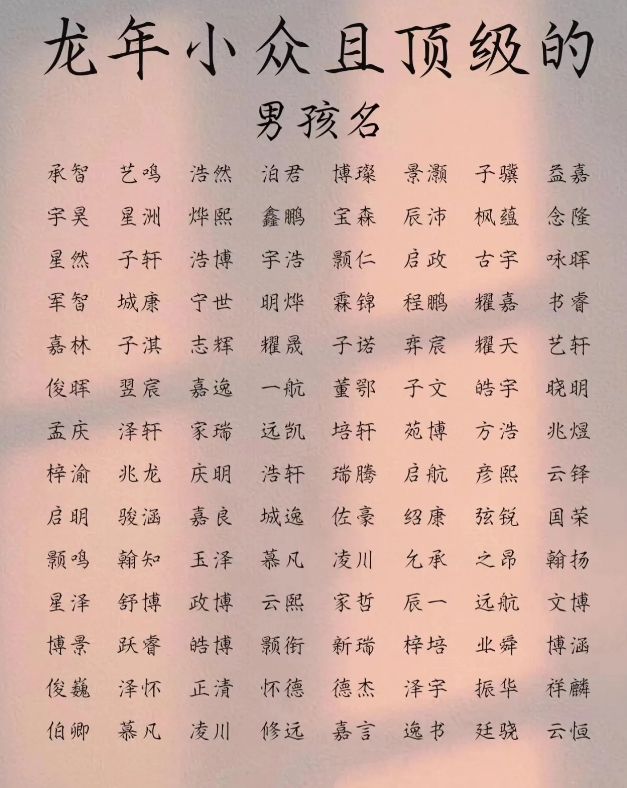 龙年小众且顶级的
男孩名
承智 艺鸣 浩然 泊君 博璨 景灏 子骥 益嘉
宇昊 星洲 烨熙 鑫鹏 宝森 辰沛 枫蕴 念隆
星然 子轩 浩博 宇浩 颢仁 启政 古宇 咏晖
军智 城康 宁世 明烨 霖锦 程鹏 耀嘉 书睿
嘉林 子淇 志辉 耀晟 子诺 弈宸 耀天 艺轩
俊晖 翌宸 嘉逸 一航 董鄂 子文 皓宇 晓明
孟庆 泽轩 家瑞 远凯 培轩 苑博 方浩 兆煜
梓渝 兆龙 庆明 浩轩 瑞腾 启航 彦熙 云铎
启明 骏涵 嘉良 城逸 佐豪 绍康 弦锐 国荣
颢鸣 翰知 玉泽 慕凡 凌川 允承 之昂 翰扬
星泽 舒博 政博 云熙 家哲 辰一 远航 文博
博景 跃睿 皓博 颢衔 新瑞 梓培 业舜 博涵
俊巍 泽怀 正清 怀德 德杰 泽宇 振华 祥麟
伯卿 慕凡 凌川 修远 嘉言 逸书 廷骁 云恒